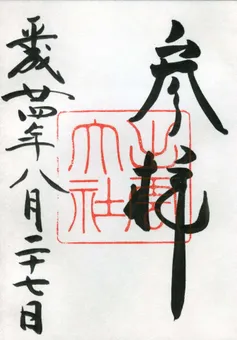 参拝
出雲
大社
平成廿四年八月二十七日